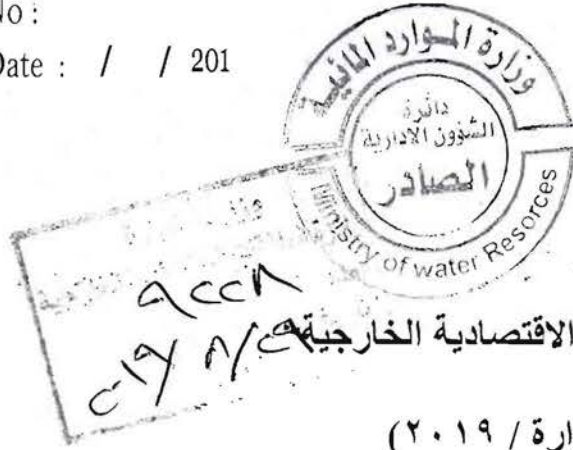 No :
Date : / / 201
وزارة الموارد المائية
دائرة
الشؤون الادارية
الصادر
Ministry of water Resorces
٩٢٢٨
٢٠١٩/٨/٢٩
الاقتصادية الخارجية
ارة / ٢٠١٩)